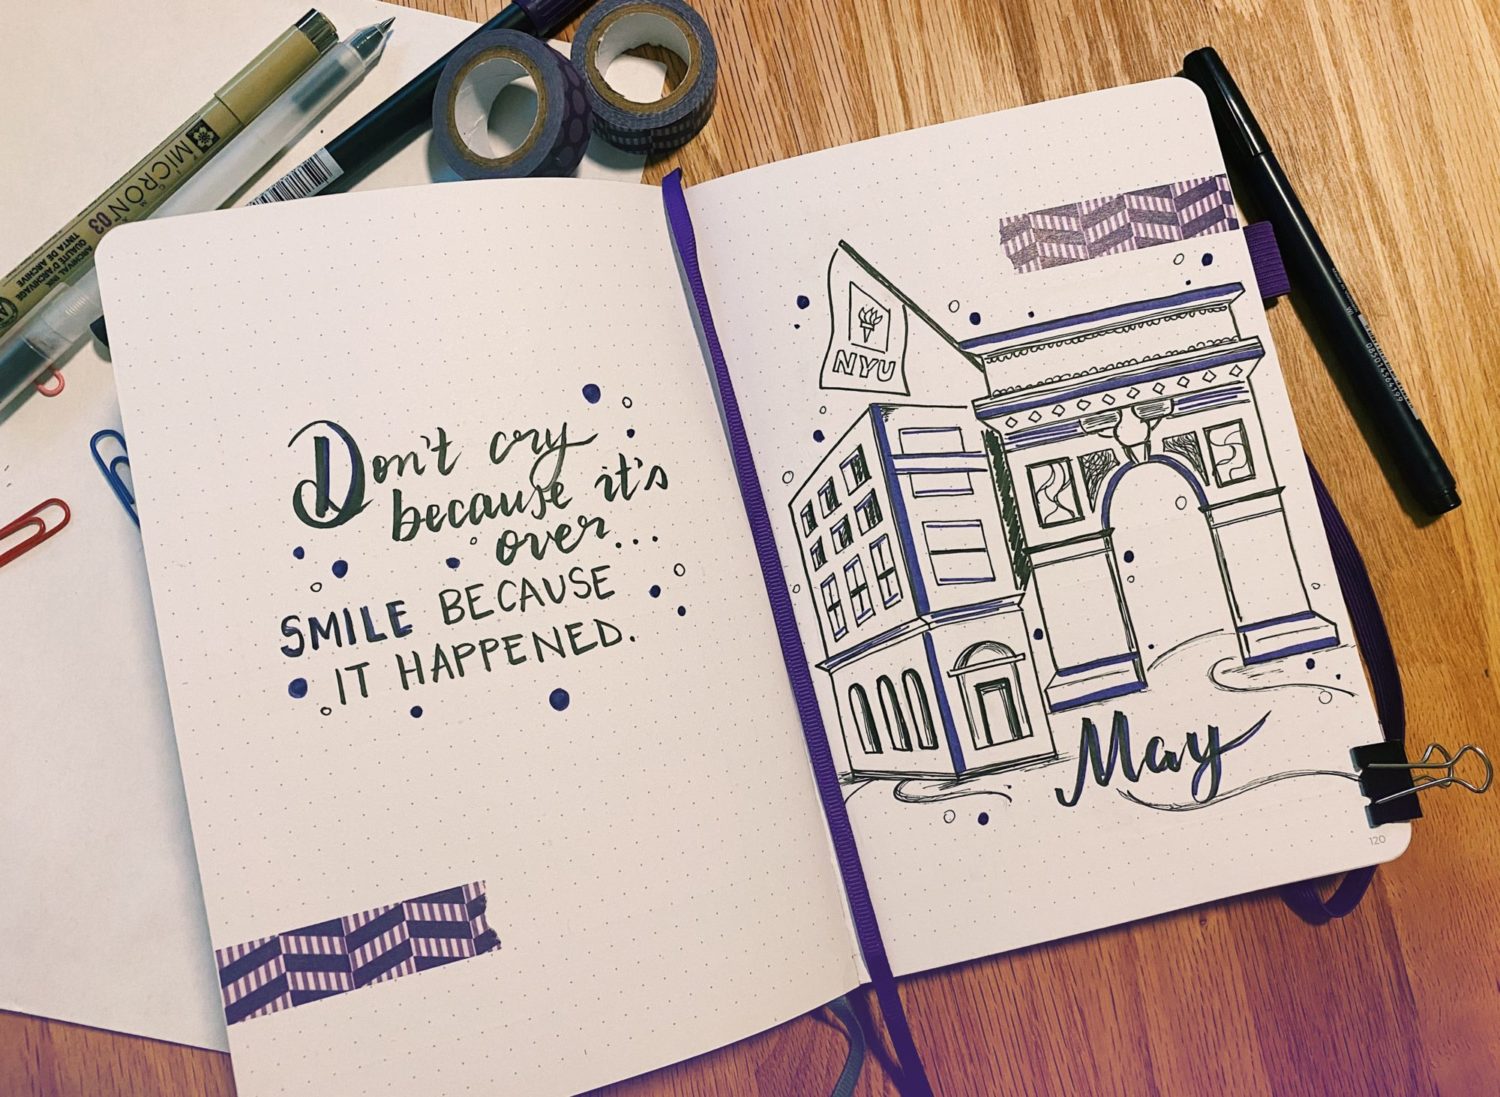 Don't cry
because it's
over...
SMILE BECAUSE
IT HAPPENED.
NYU
May
120
MICRON 03
ARCHIVAL INK
QUALITÉ D'ARCHIVAGE
TINTA DE ARCHIVE